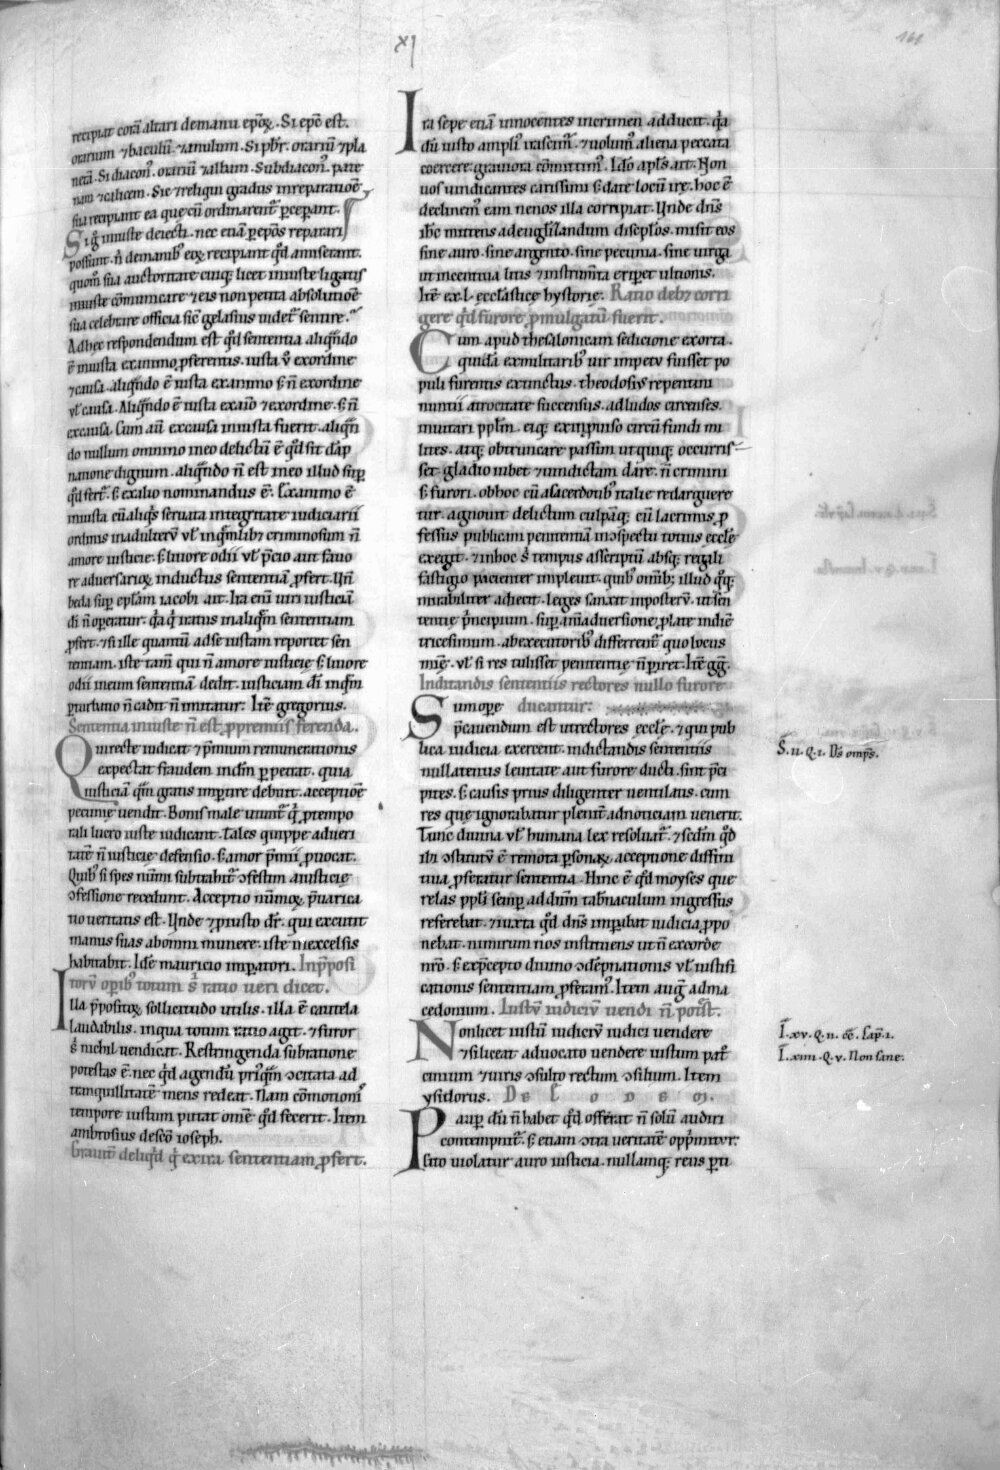 XI
161
recipiat corā altari de manu ep̄oꝝ. Si ep̄c est.
orarium ⁊ baculū. ⁊ anulum. Si pb̄r. orariū ⁊ pla
netā. Si diacon᷒. orariū ⁊ albam. Subdiacon᷒. pate
nam ⁊ calicem. Sic ⁊ reliqui gradus in reparationē
sua recipiant ea que cū ordinarent᷑ ꝑceperant.
Sigͥ iniuste deiecti. nec etiā ꝑ ep̄os reparari
possunt. n̄ de manibꝰ eoꝝ recipiant qd̄ amiserant.
quom̄ sua auctoritate cuiqꝫ licet iniuste ligatis
iniuste cōmunicare ⁊ eis non petita absolutiōe
sua celebrare officia sic̄ gelasius uidet᷑ sentire.
Ad hec respondendum est qd̄ sententia aliqn̄do
ē iniusta ex animo ꝓferentis. iusta ū ex ordine
⁊ causa. aliqn̄do ē iusta ex animo s; n̄ ex ordine
uł causa. Aliqn̄do ē iusta ex aīo ⁊ ex ordine. s; n̄
ex causa. Cum aū ex causa iniusta fuerit. aliqn̄
do nullum omnino in eo delictū ē qd̄ sit dāp
natione dignum. aliqn̄do n̄ est in eo illud suꝑ
qd̄ fert᷑. s; ex alio nominandus ē. Ex animo ē
iniusta cū aliqͥs seruata integritate iudiciarii
ordinis in adulterū uł in quēlibꝫ criminosum n̄
amore iusticie. s; liuore odii uł p̄cio aut fauo
re aduersarioꝝ inductus sententiā ꝓfert. Uñ
beda suꝑ epłam iacobi ait. Ira enī uiri iusticiā
di n̄ operatur. qͥa qͥ iratus in aliquē sententiam
ꝓfert. ⁊ si ille quantū ad se iustam reportet sen
tentiam. iste tam̄ qui n̄ amore iusticię s; liuore
odii in eum sententiā dedit. iusticiam dī in quē
ꝑturbatio n̄ cadit n̄ imitatur. Itē gregorius.
Sententia iniuste n̄ est ꝓ premiis ferenda.
Qui recte iudicat ⁊ p̄mium remunerationis
expectat fraudem in dm̄ ꝑpetrat. quia
iusticiā quā gratis impartire debuit. acceptiōe
pecunię uendit. Bonis male utunt᷑ qͥ pro tempo
rali lucro iuste iudicant. Tales quippe ad ueri
tatē n̄ iusticię defensio. s; amor p̄mii ꝓuocat.
Quibꝰ si spes nūmi subtrahit᷑ ꝯfestim a iusticię
ꝯfessione recedunt. Acceptio nūmoꝝ p̄uarica
tio ueritatis est. Unde ⁊ ꝓ iusto dr̄. qui excutit
manus suas ab omni munere. iste in excelsis
habitabit. Idē mauricio imꝑatori. In p̄posi
torū opibꝰ totum s; ratio ueri dicet.
Illa p̄positoꝝ sollicitudo utilis. illa ē cautela
laudabilis. in qua totum ratio agit. ⁊ furor
s; nichil uendicat. Restringenda sub ratione
potestas ē. nec qd̄ agendū priusquā ꝯcitata ad
tranquillitatē mens redeat. Nam cōmotionis
tempore iustum putat omē qd̄ fecerit. Item
ambrosius de sc̄o ioseph.
Grauit᷑ deliqͥd qͥ extra sententiam ꝓfert.
Ira sepe etiā innocentes in crimen adducit. qͥa
dū iusto ampliꝰ irascim᷑. ⁊ uolumꝰ aliena peccata
coercere. grauiora cōmittimꝰ. Ideo apłs ait. Non
uos uindicantes carissimi s; date locū irę. hoc ē
declinem᷒ eam ne nos illa corripiat. Unde dn̄s
ih̄c mittens ad euglīandum discipłos. misit eos
sine auro. sine argento. sine pecunia. sine uirga
ut incentiua litis ⁊ instrum̄ta eriꝑet ultionis.
Itē ex .l. ecclasticę hystorię. Ratio debꝫ corri
gere qd̄ furore ꝓmulgatū fuerit.
Cum apud thesalonicam sedicione exorta.
quidā ex militaribꝰ uir impetu fuisset po
puli furentis extinctus. theodosiꝰ repentini
nuntii atrocitate succensus. ad ludos circenses.
inuitari pplm̄. eiqꝫ ex inprouiso circū fundi mi
lites. atqꝫ obtruncare passim ut quiqꝫ occurris
set gladio iubet ⁊ uindictam dare. n̄ crimini
s; furori. ob hoc cū a sacerdotibꝰ italie redarguere
tur. agnouit delictum culpāqꝫ cū lacrimis ꝓ
fessus publicam penitentiā in ꝯspectu totius ecclę
exegit. ⁊ in hoc s; tempus ascriptū absqꝫ regali
fastigio pacienter impleuit. quibꝰ omībꝫ illud qͦqꝫ
mirabiliter adiecit. leges sanxit in posterū. ut sen
tentie p̄ncipium. suꝑ aīaduersione ꝓlate in diē
tricesimum. ab executoribꝰ differrent᷑ quo locus
mię. uł si res tulisset penitentię n̄ ꝑiret. Itē gg̃.
In dictandis sententiis rectores nullo furore
ducantur:
Summopere
p̄cauendum est ut rectores ecclę. ⁊ qui pub
lica iudicia exercent. in dictandis sententiis
nullatenus leuitate aut furore ducti. sint p̄ci
pites. s; causis prius diligenter uentilatis. cum
res que ignorabatur plenit᷑ ad noticiam uenerit.
Tunc diuina uł humana lex resoluat᷑. ⁊ sedm̄ qd̄
ibi ꝯstitutū ē remota ꝑsonaꝝ acceptione diffini
tiua ꝓferatur sententia. Hinc ē qd̄ moyses que
relas ppłi semꝑ ad dnm̄ tab̄naculum ingressus
referebat. ⁊ iuxta qd̄ dn̄s imꝑabat iudicia ꝓpo
nebat. nimirum nos instituens ut n̄ ex corde
nr̄o. s; ex p̄cepto diuino ꝯdēpnationis uł iustifi
cationis sententiam ꝓferamꝰ. Item aug̃ ad ma
cedonium. Iustū iudiciū uendi n̄ potest.
Non licet iustū iudiciū iudici uendere
⁊ si liceat aduocato uendere iustum pat
cinium ⁊ uiris ꝯsulto rectum ꝯsilium. Item
ysidorus. De eodem.
Pauꝑ dū n̄ habet qd̄ offerat n̄ solū audiri
contempnit᷑. s; etiam ꝯtra ueritatē opp̄mitur.
Cito uiolatur auro iusticia. nullamqꝫ reus ꝑti
S̄. II. Q. I. Ds̄ omps̄.
Ī. xv. Q. II. cē. Cap̄. I.
Ī. xiiii. Q. v. Non sane.